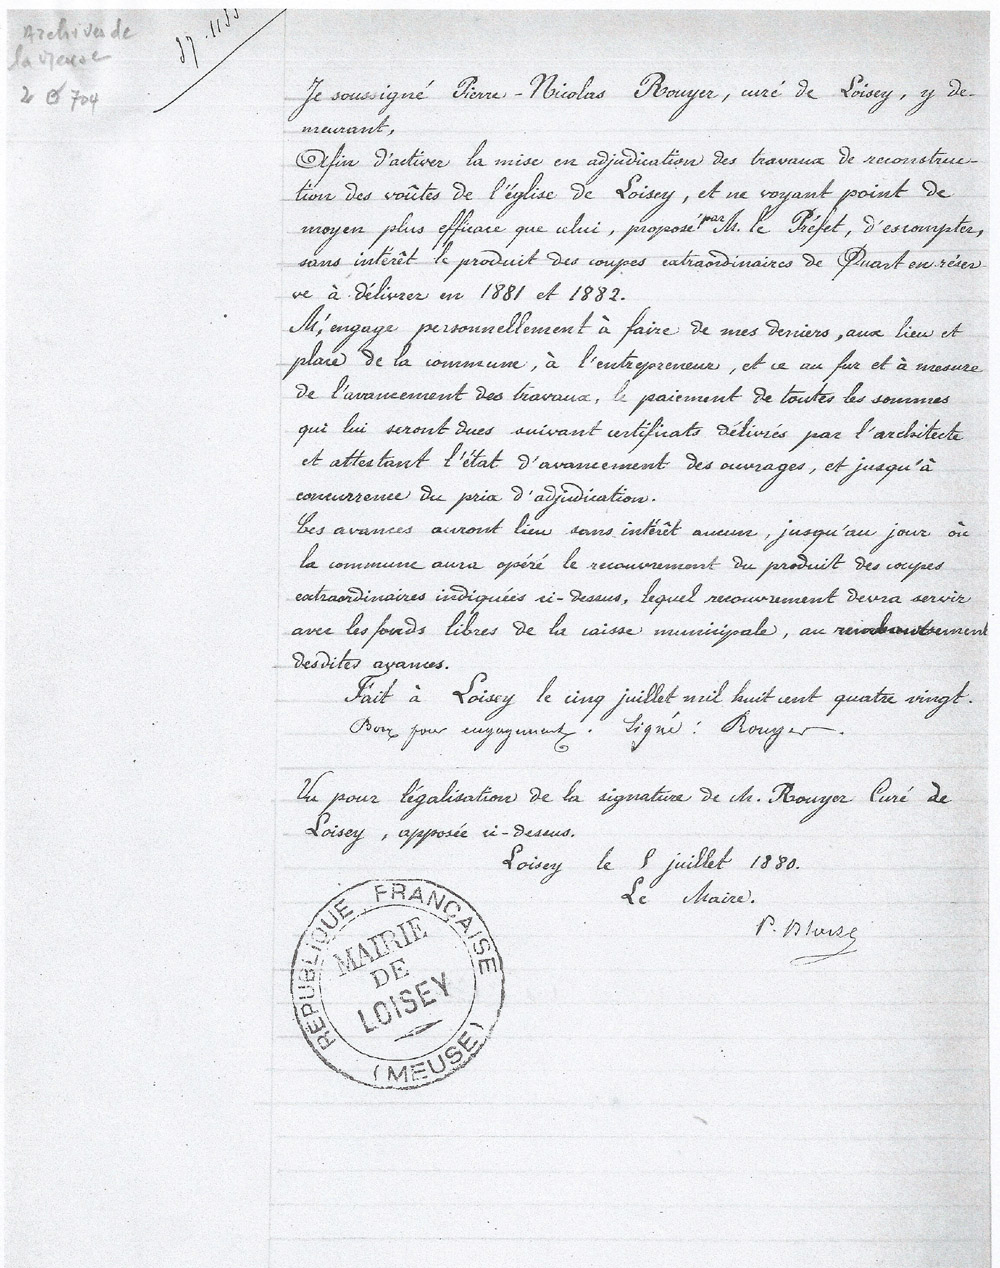 Archives de
la Meuse
704
Je soussigné Pierre-Nicolas Rouyer, curé de Loisey, y de-
meurant,
Afin d'activer la mise en adjudication des travaux de reconstruc-
tion des voûtes de l'église de Loisey, et ne voyant point de
moyen plus efficace que celui, proposé par M. le Préfet, d'escompter,
sans intérêt le produit des coupes extraordinaires de Quart en réser-
ve à délivrer en 1881 et 1882.
M'engage personnellement à faire de mes deniers, aux lieu et
place de la commune, à l'entrepreneur, et ce au fur et à mesure
de l'avancement des travaux, le paiement de toutes les sommes
qui lui seront dues suivant certificats délivrés par l'architecte
et attestant l'état d'avancement des ouvrages, et jusqu'à
concurrence du prix d'adjudication.
Ces avances auront lieu sans intérêt aucun, jusqu'au jour où
la commune aura opéré le recouvrement du produit des coupes
extraordinaires indiquées ci-dessus, lequel recouvrement devra servir
avec les fonds libres de la caisse municipale, au remboursement
desdites avances.
Fait à Loisey le cinq juillet mil huit cent quatre vingt.
Bon pour engagement. Signé : Rouyer.
Vu pour légalisation de la signature de M. Rouyer Curé de
Loisey, apposée ci-dessus.
Loisey le 5 juillet 1880.
Le Maire.
RÉPUBLIQUE FRANÇAISE
MAIRIE
DE
LOISEY
(MEUSE)